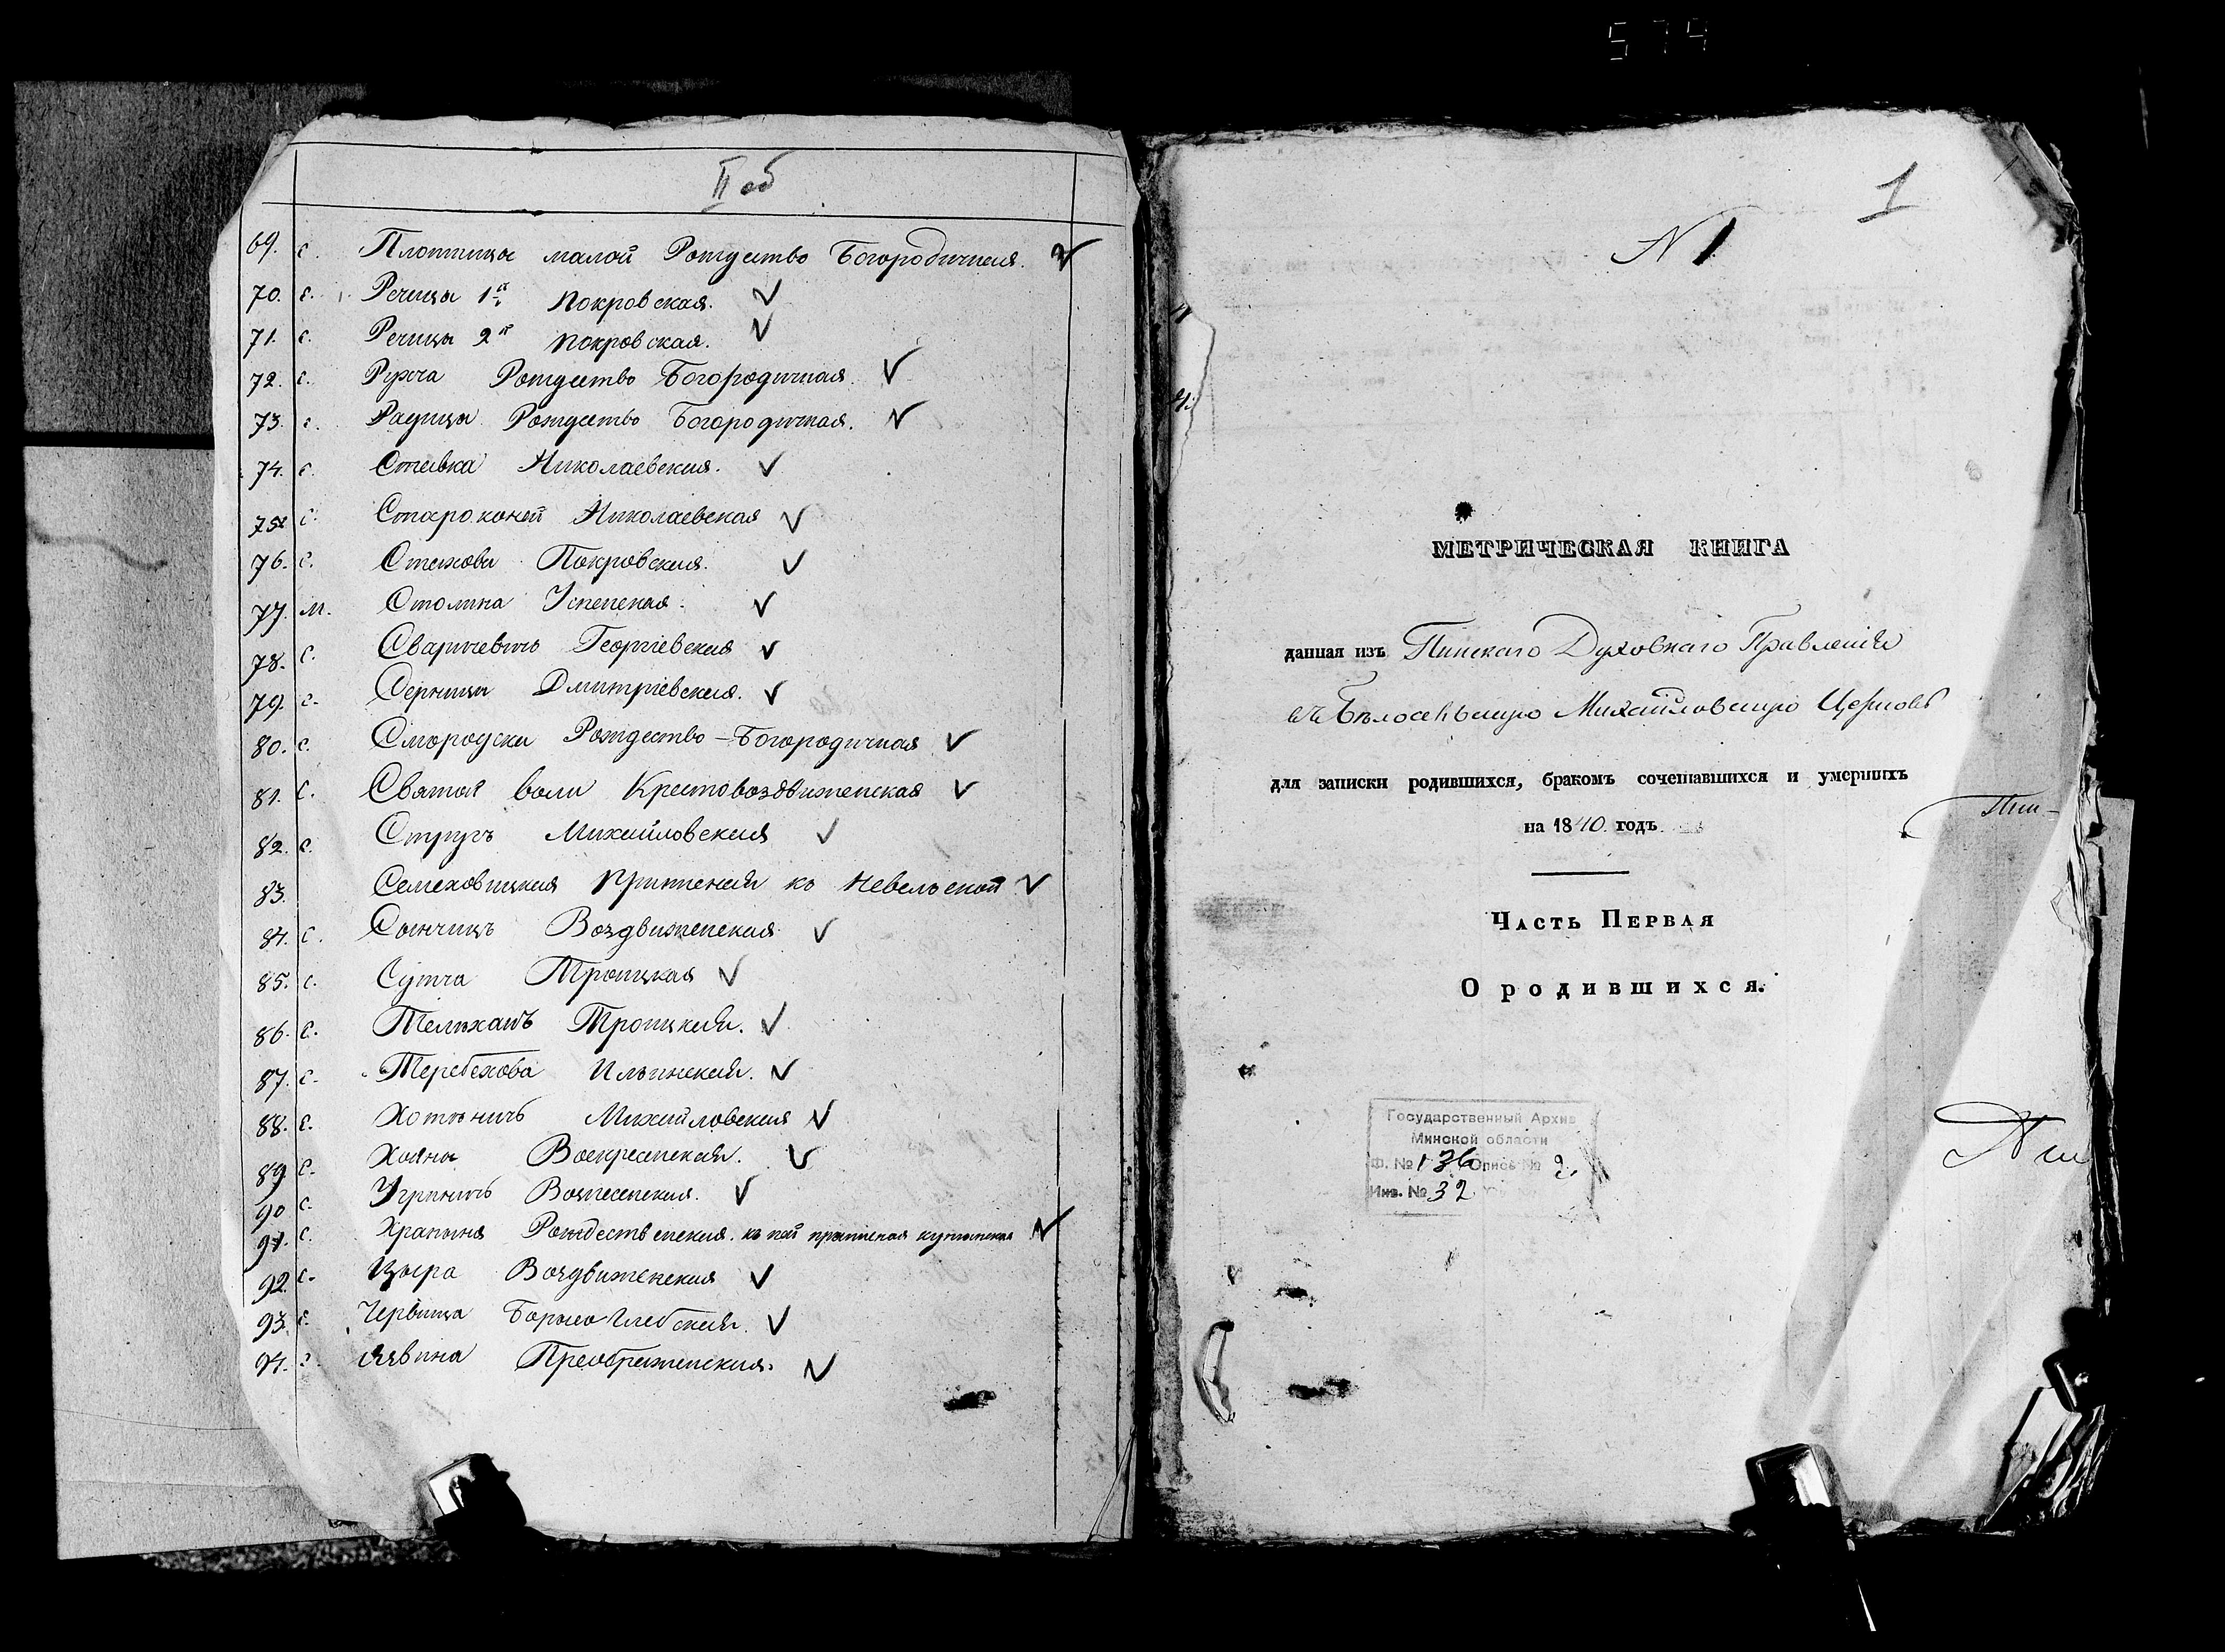 574
II об
69. с. Плотницы малой Рождество Богородичная.
70. с. Речицы 1й Покровская.
71. с. Речицы 2й Покровская.
72. с. Рухча Рождество Богородичная.
73. с. Радчицы Рождество Богородичная.
74. с. Ставка Николаевская.
75. с. Староконей Николаевская
76. с. Стахова Покровская.
77. м. Столина Успенская.
78. с. Сваричевичь Георгіевская
79. с. Серники Дмитріевская.
80. с. Смородска Рождество-Богородичная
81. с. Святой воли Крестовоздвиженская
82. с. Стругъ Михайловская
83. Семеховицкая приписная къ Невельской
84. с. Сынчицъ Воздвиженская
85. с. Сутча Троицкая
86. с. Телеханъ Троицкая.
87. с. Теребехова Ильинская.
88. с. Хотыничь Михайловская
89. с. Хояна Воскресенская.
90. с. Угриничь Вознесенская.
91. с. Храпина Рождественская. къ ней приписная
92. с. Цыра Воздвиженская
93. с. Червища Борисо Глебская.
94. с. Язвина Преображенская.
1
N 1
МЕТРИЧЕСКАЯ КНИГА
данная изъ Пинскаго Духовнаго Правленія
въ Михайловскую Церковь
для записки родившихся, бракомъ сочетавшихся и умершихъ
Пин-
на 1840. годъ
Часть Первая
О родившихся.
Государственный Архив
Минской области
Ф. № 136 Опись № 2.
Инв. № 32